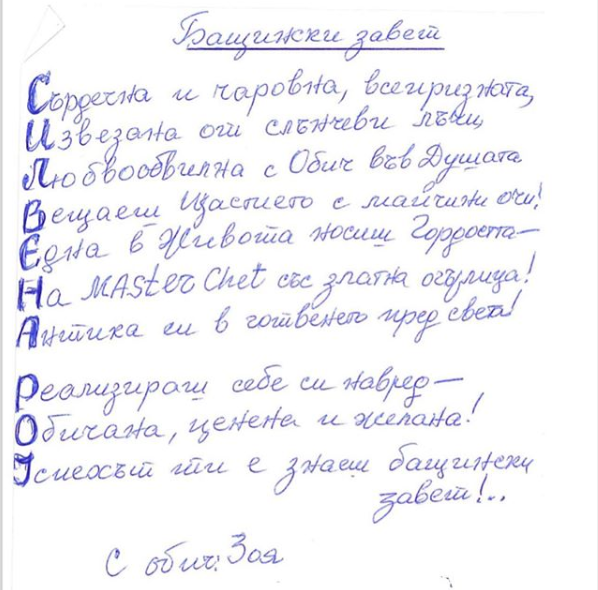 Бащижски завет
Сърдечна и чаровна, всепризната,
Извезана от слънчеви лъчи,
Любвообвилна с Обич във Душата
Вещаеш Щастието с майчини очи!
Една в Живота носиш Гордостта—
На MASter Chef със златна огърлица!
Антика си в готвенето пред света!
Реализираш себе си навред—
Обичана, ценена и желана!
Успехът ти е знаеш бащински
завет!..
С обич: Зоя